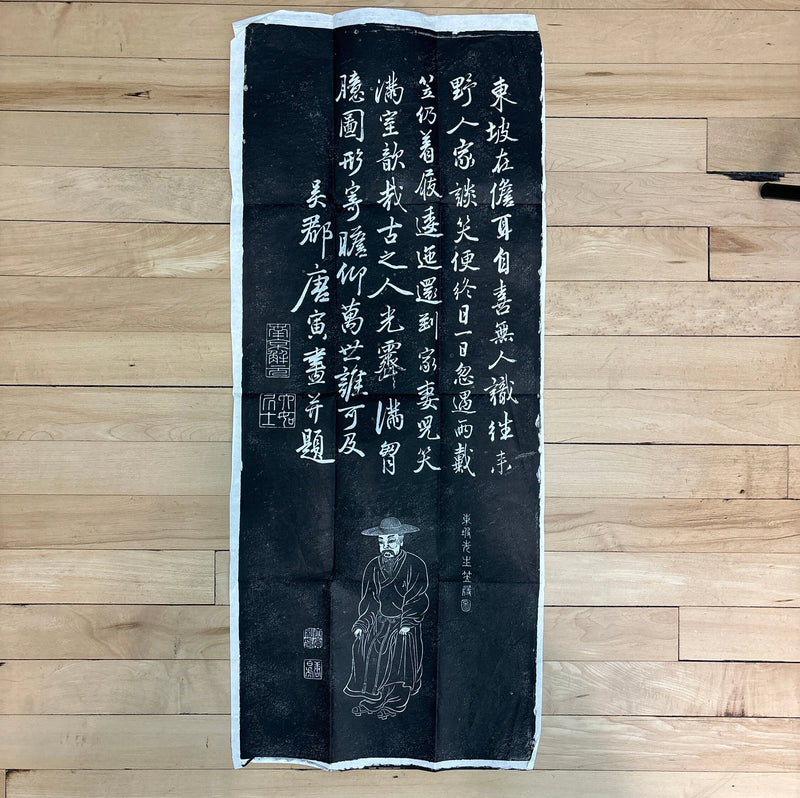 東坡在儋耳自喜無人識往来
野人家談笑便終日一日忽遇雨戴
笠仍着屐逶迤還到家妻児笑
満室歆哉古之人光霽満胷
臆圖形寄瞻仰萬世誰可及
吴郡唐寅畫并題
南京解元
六如居士
東坡先生笠屐圖